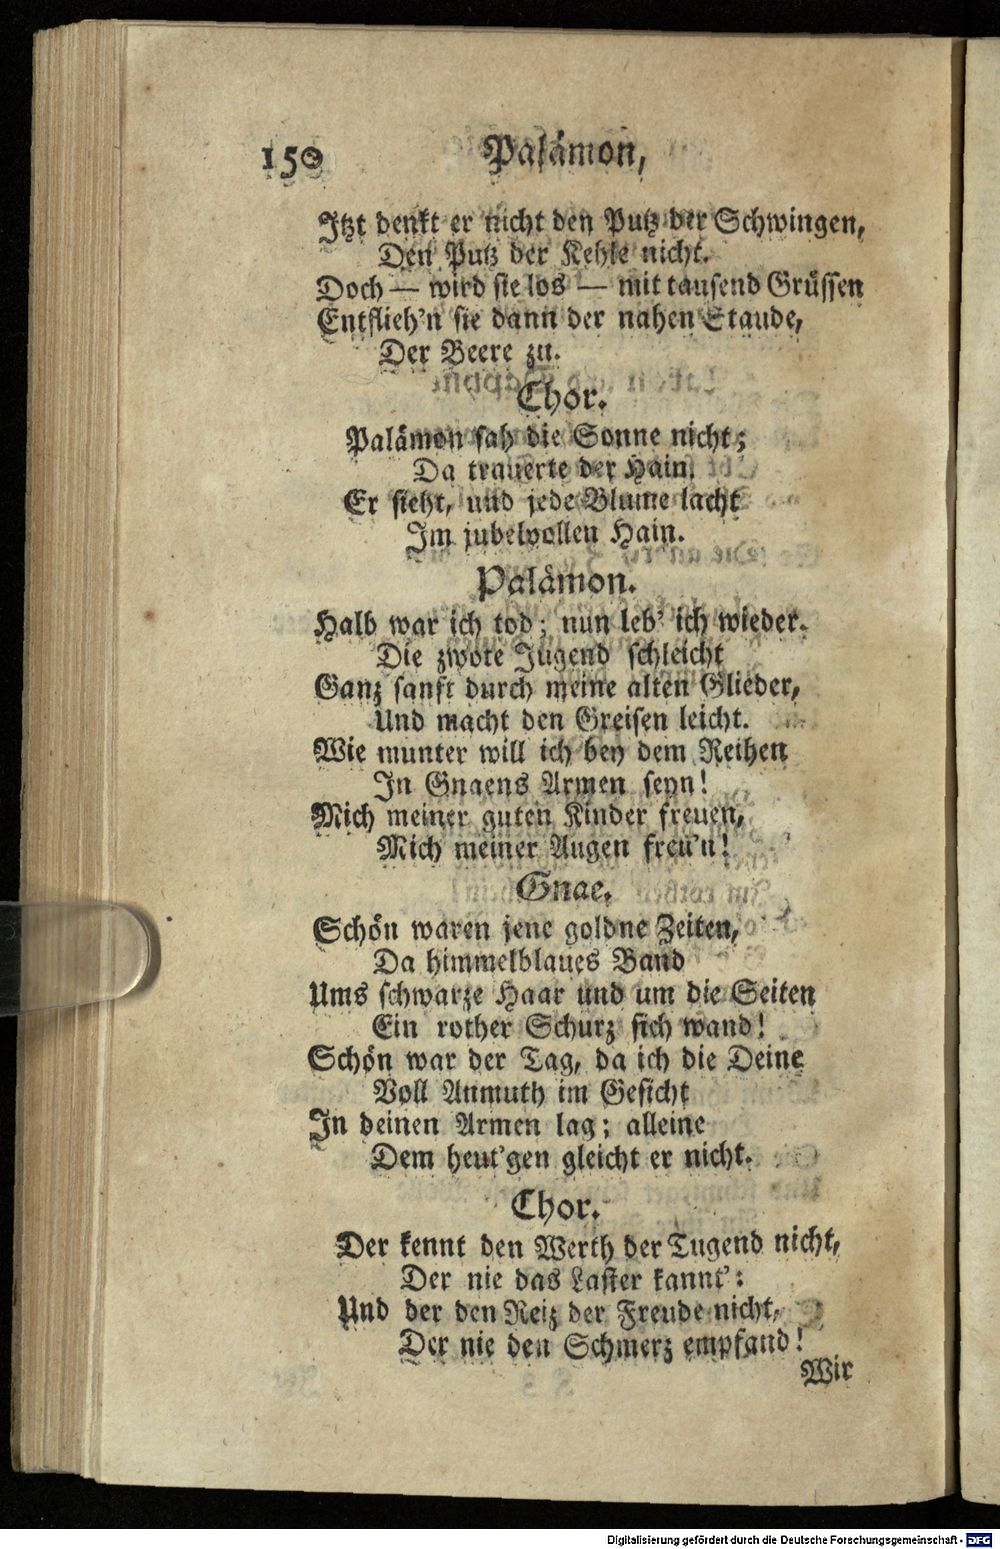 150 Palämon,
Itzt denkt er nicht den Putz der Schwingen,
Den Putz der Kehle nicht.
Doch — wird sie los — mit tausend Grüssen
Entflieh'n sie dann der nahen Staude,
Der Beere zu.
Chor.
Palämon sah die Sonne nicht;
Da trauerte der Hain.
Er sieht, und jede Blume lacht
Im jubelvollen Hain.
Palämon.
Halb war ich tod; nun leb' ich wieder.
Die zwote Jugend schleicht
Ganz sanft durch meine alten Glieder,
Und macht den Greisen leicht.
Wie munter will ich bey dem Reihen
In Gnaens Armen seyn!
Mich meiner guten Kinder freuen,
Mich meiner Augen freu'n!
Gnae.
Schön waren jene goldne Zeiten,
Da himmelblaues Band
Ums schwarze Haar und um die Seiten
Ein rother Schurz sich wand!
Schön war der Tag, da ich die Deine
Voll Anmuth im Gesicht
In deinen Armen lag; alleine
Dem heut'gen gleicht er nicht.
Chor.
Der kennt den Werth der Tugend nicht,
Der nie das Laster kannt':
Und der den Reiz der Freude nicht,
Der nie den Schmerz empfand!
Wir
Digitalisierung gefördert durch die Deutsche Forschungsgemeinschaft - DFG